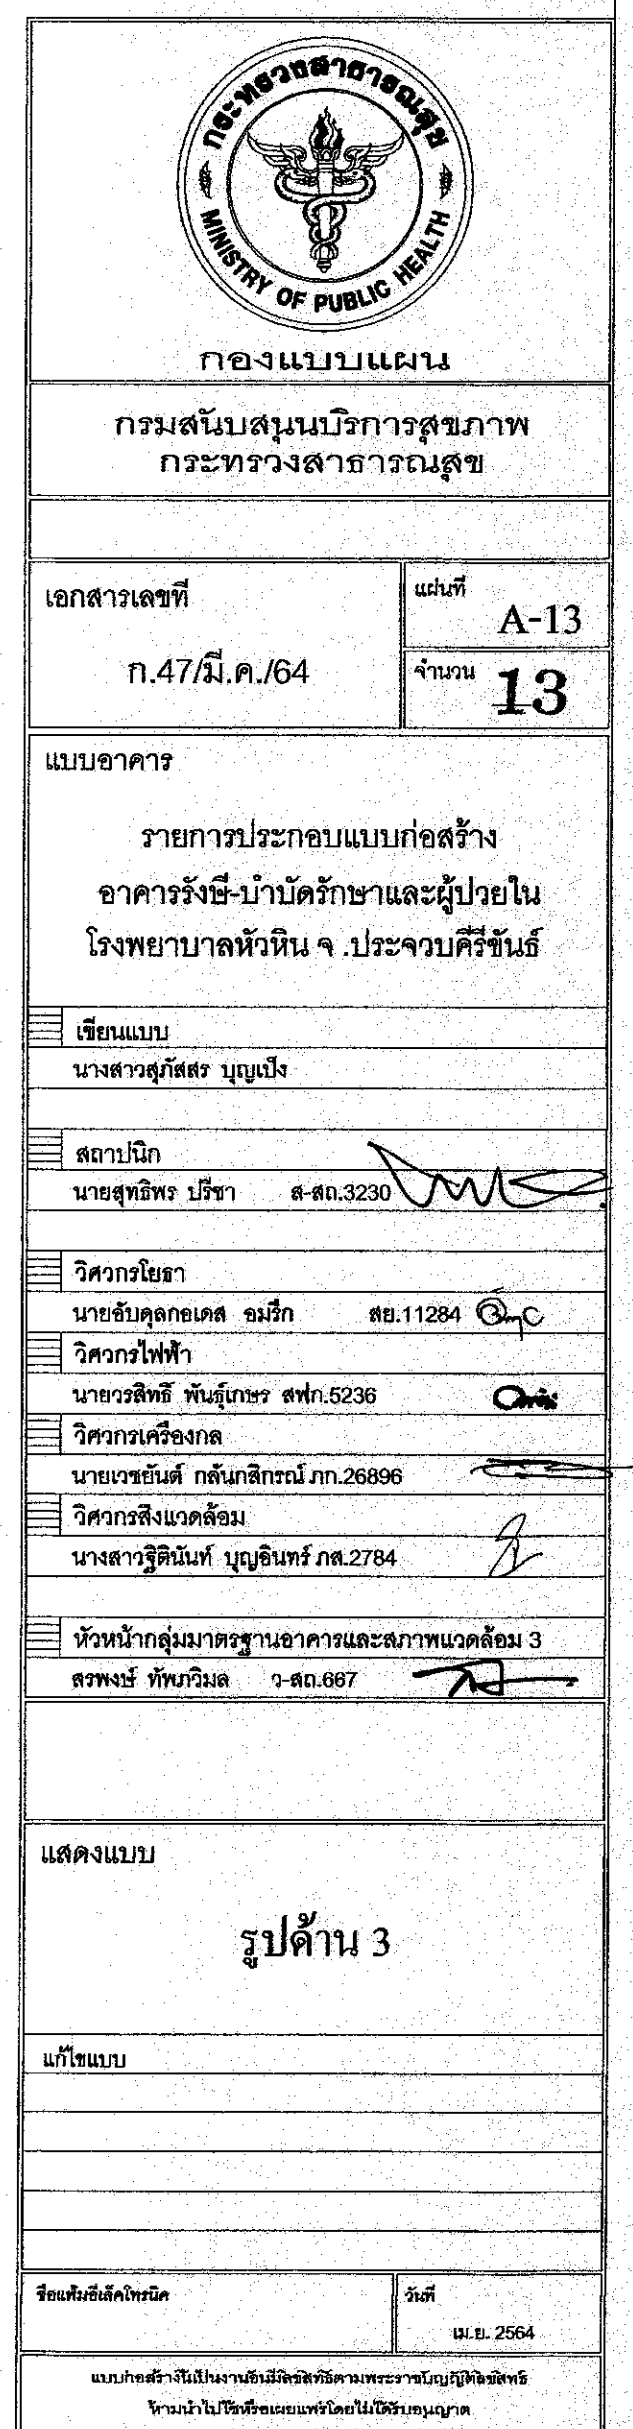 กระทรวงสาธารณสุข
MINISTRY OF PUBLIC HEALTH
กองแบบแผน
กรมสนับสนุนบริการสุขภาพ
กระทรวงสาธารณสุข
เอกสารเลขที่
ก.47/มี.ค./64
แผ่นที่
A-13
จำนวน
13
แบบอาคาร
รายการประกอบแบบก่อสร้าง
อาคารรังษี-บำบัดรักษาและผู้ป่วยใน
โรงพยาบาลหัวหิน จ .ประจวบคีรีขันธ์
เขียนแบบ
นางสาวสุภัสสร บุญเป็ง
สถาปนิก
นายสุทธิพร ปรีชา ส-สถ.3230
วิศวกรโยธา
นายอับดุลกอเดส อมรึก สย.11284
วิศวกรไฟฟ้า
นายวรสิทธิ์ พันธุ์เกษร สฟก.5236
วิศวกรเครื่องกล
นายเวชยันต์ กลั่นกสิกรณ์ ภก.26896
วิศวกรสิ่งแวดล้อม
นางสาวฐิตินันท์ บุญอินทร์ ภส.2784
หัวหน้ากลุ่มมาตรฐานอาคารและสภาพแวดล้อม 3
สรพงษ์ ทัพภวิมล ว-สถ.667
แสดงแบบ
รูปด้าน 3
แก้ไขแบบ
ชื่อแฟ้มอีเล็คโทรนิค
วันที่
เม.ย. 2564
แบบก่อสร้างนี้เป็นงานอันมีลิขสิทธิ์ตามพระราชบัญญัติลิขสิทธิ์
ห้ามนำไปใช้หรือเผยแพร่โดยไม่ได้รับอนุญาต